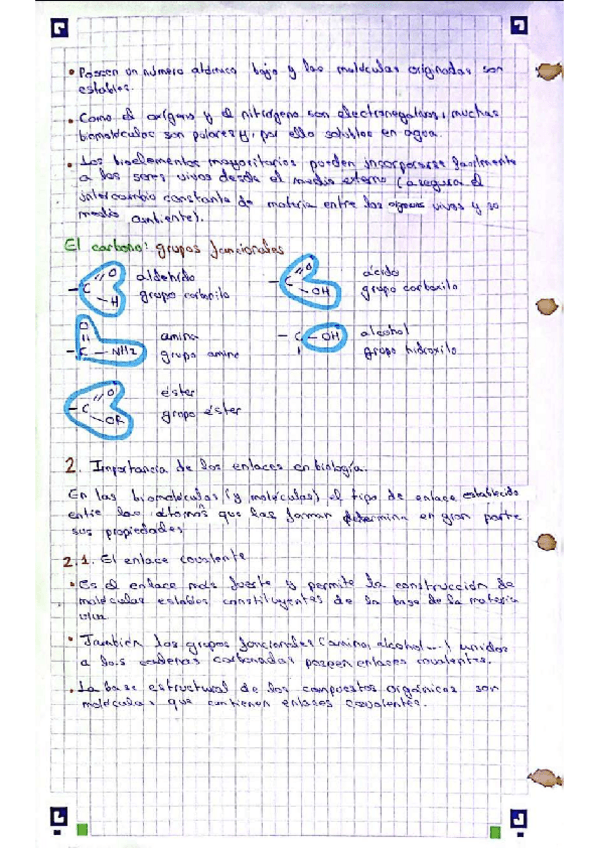 • Poseen un número atómico bajo y las moléculas originadas son
estables.
• Como el oxígeno y el nitrógeno son electronegativos, muchas
biomoléculas son polares y, por ello solubles en agua.
• Los bioelementos mayoritarios pueden incorporarse fácilmente
a los seres vivos desde el medio externo (asegura el
intercambio constante de materia entre los vivos y so
medio ambiente).
El carbono: grupos funcionales
- C = O - H aldehído
grupo carbonilo
- C = O - OH ácido
grupo carboxilo
O = - C - NH2 amina
grupo amine
- C - OH alcohol
grupo hidroxilo
- C = O - OR éster
grupo éster
2. Importancia de los enlaces en biología.
En las biomoléculas (y moléculas) el tipo de enlace establecido
entre los átomos que las forman determina en gran parte
sus propiedades
2.1. El enlace covalente
• Es el enlace más fuerte y permite la construcción de
moléculas estables constituyentes de la base de la materia
viva
• También los grupos funcionales (amino, alcohol...) unidos
a las cadenas carbonadas poseen enlaces covalentes.
• La base estructural de los compuestos orgánicos son
moléculas que contienen enlaces covalentes.